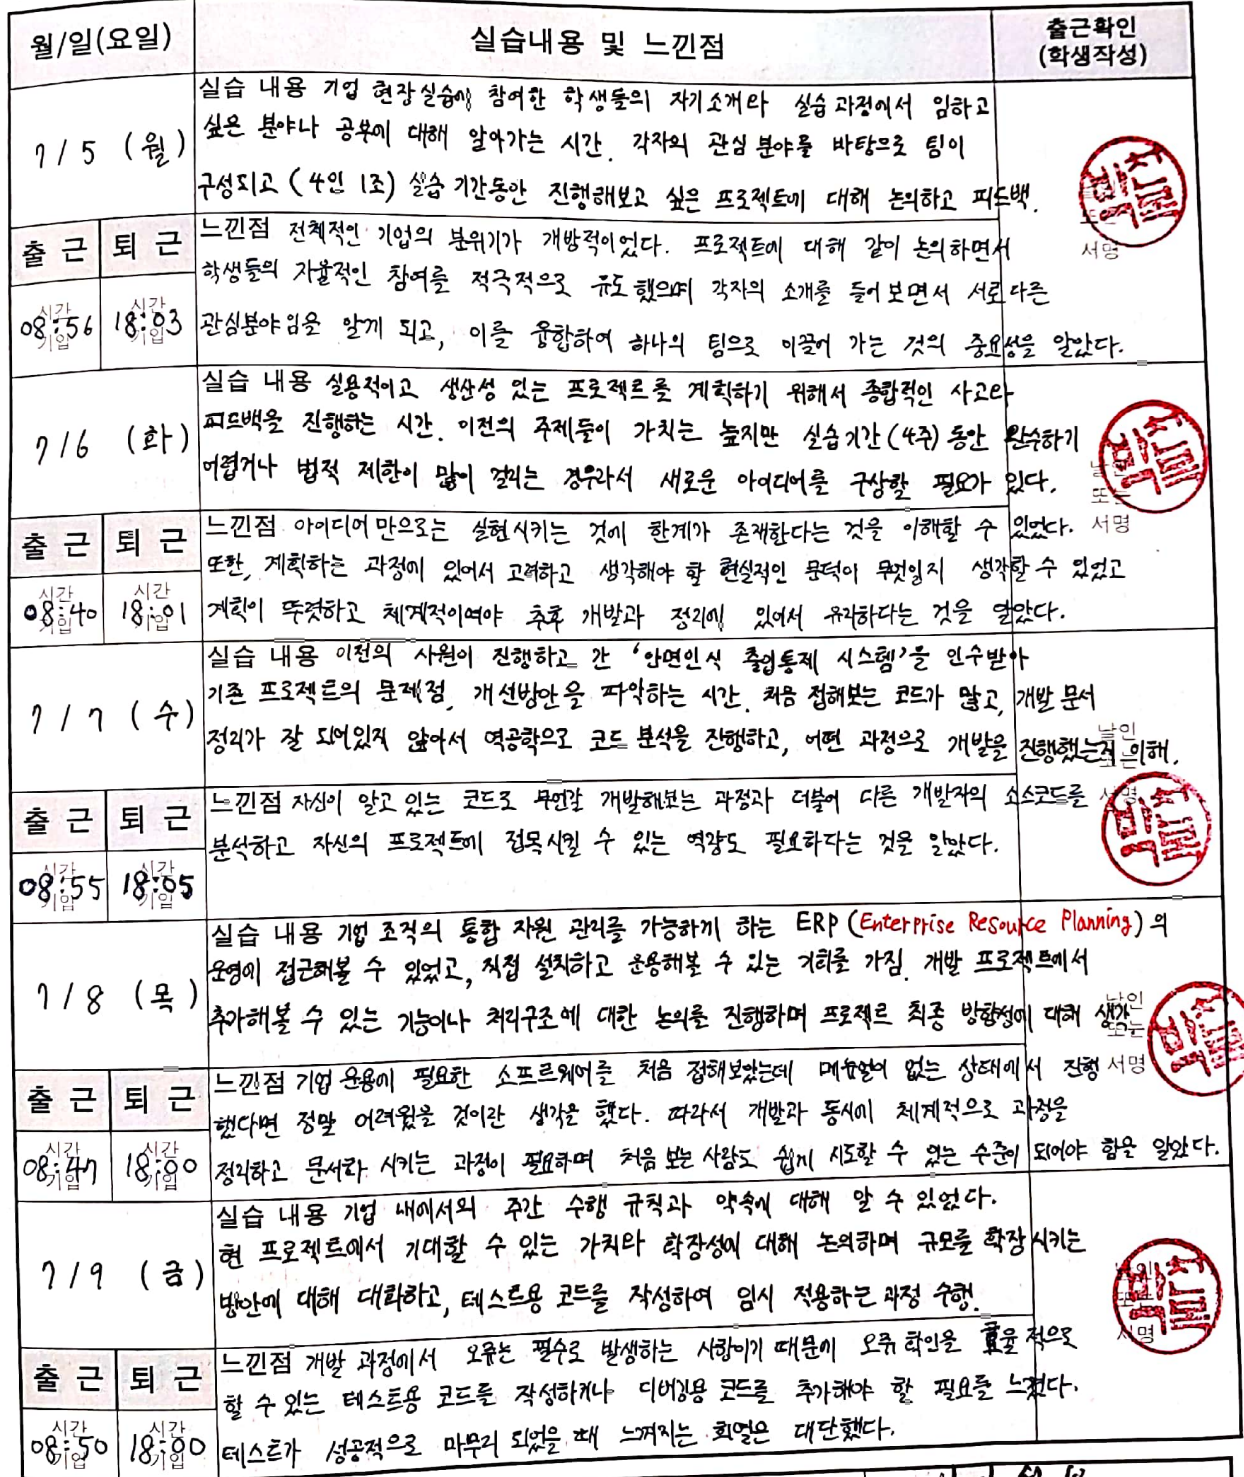 월/일(요일) 실습내용 및 느낀점 출근확인
(학생작성)
7/5 (월)
실습 내용 기업 현장실습에 참여한 학생들의 자기소개와 실습 과정에서 임하고
싶은 분야나 공부에 대해 알아가는 시간. 각자의 관심 분야를 바탕으로 팀이
구성되고 (4인 1조) 실습 기간동안 진행해보고 싶은 프로젝트에 대해 논의하고 피드백.
날인
또는
서명
출 근 퇴 근
시간
기입
08:56
시간
기입
18:03
느낀점 전체적인 기업의 분위기가 개방적이었다. 프로젝트에 대해 같이 논의하면서
학생들의 자율적인 참여를 적극적으로 유도했으며 각자의 소개를 들어보면서 서로 다른
관심분야임을 알게 되고, 이를 융합하여 하나의 팀으로 이끌어 가는 것의 중요성을 알았다.
7/6 (화)
실습 내용 실용적이고 생산성 있는 프로젝트를 계획하기 위해서 종합적인 사고와
피드백을 진행하는 시간. 이전의 주제들이 가치는 높지만 실습기간(4주) 동안 완수하기
어렵거나 법적 제한이 많이 걸리는 경우라서 새로운 아이디어를 구상할 필요가 있다.
날인
또는
서명
출 근 퇴 근
시간
기입
08:40
시간
기입
18:01
느낀점 아이디어만으로는 실현시키는 것에 한계가 존재한다는 것을 이해할 수 있었다.
또한, 계획하는 과정에 있어서 고려하고 생각해야 할 현실적인 문턱이 무엇일지 생각할 수 있었고
계획이 뚜렷하고 체계적이여야 추후 개발과 정리에 있어서 유리하다는 것을 알았다.
7/7 (수)
실습 내용 이전의 사원이 진행하고 간 '안면인식 출입통제 시스템'을 인수받아
기존 프로젝트의 문제점, 개선방안을 파악하는 시간. 처음 접해보는 코드가 많고, 개발 문서
정리가 잘 되어있지 않아서 역공학으로 코드 분석을 진행하고, 어떤 과정으로 개발을 진행했는지 이해.
날인
또는
서명
출 근 퇴 근
시간
기입
08:55
시간
기입
18:05
느낀점 자신이 알고 있는 코드로 무언갈 개발해보는 과정과 더불어 다른 개발자의 소스코드를
분석하고 자신의 프로젝트에 접목시킬 수 있는 역량도 필요하다는 것을 알았다.
7/8 (목)
실습 내용 기업 조직의 통합 자원 관리를 가능하게 하는 ERP (Enterprise Resource Planning)의
운영에 접근해볼 수 있었고, 직접 설치하고 운용해볼 수 있는 기회를 가짐. 개발 프로젝트에서
추가해볼 수 있는 기능이나 처리구조에 대한 논의를 진행하며 프로젝트 최종 방향성에 대해 생각
날인
또는
서명
출 근 퇴 근
시간
기입
08:47
시간
기입
18:00
느낀점 기업 운용에 필요한 소프트웨어를 처음 접해보았는데 메뉴얼이 없는 상태에서 진행
했다면 정말 어려웠을 것이란 생각을 했다. 따라서 개발과 동시에 체계적으로 과정을
정리하고 문서화 시키는 과정이 필요하며 처음 보는 사람도 쉽게 시도할 수 있는 수준이 되어야 함을 알았다.
7/9 (금)
실습 내용 기업 내에서의 주간 수행 규칙과 약속에 대해 알 수 있었다.
현 프로젝트에서 기대할 수 있는 가치와 확장성에 대해 논의하며 규모를 확장시키는
방안에 대해 대화하고, 테스트용 코드를 작성하여 임시 적용하는 과정 수행.
또는
서명
출 근 퇴 근
시간
기입
08:50
시간
기입
18:00
느낀점 개발 과정에서 오류는 필수로 발생하는 사항이기 때문에 오류 확인을 효율적으로
할 수 있는 테스트용 코드를 작성하거나 디버깅용 코드를 추가해야 할 필요를 느꼈다.
테스트가 성공적으로 마무리 되었을 때 느껴지는 희열은 대단했다.